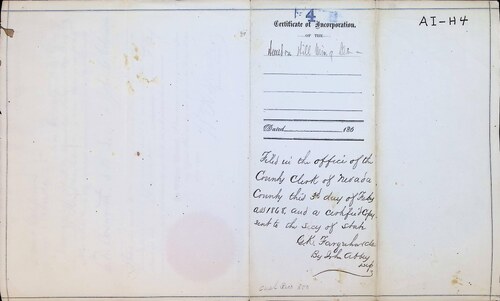 4
AI-H4
Certificate of Incorporation.
OF THE
Hill Ming Co
Dated 186
Filed in the office of the
County Clerk of Nevada
County this 3d day of Feby
AD 1868 and a certified Copy
sent to the Secy of State
G.K. Farquhar
By John
Dep